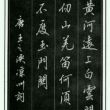 黃河遠上白雲間
仞山羌笛何須
不度玉門關
唐王之渙涼州詞